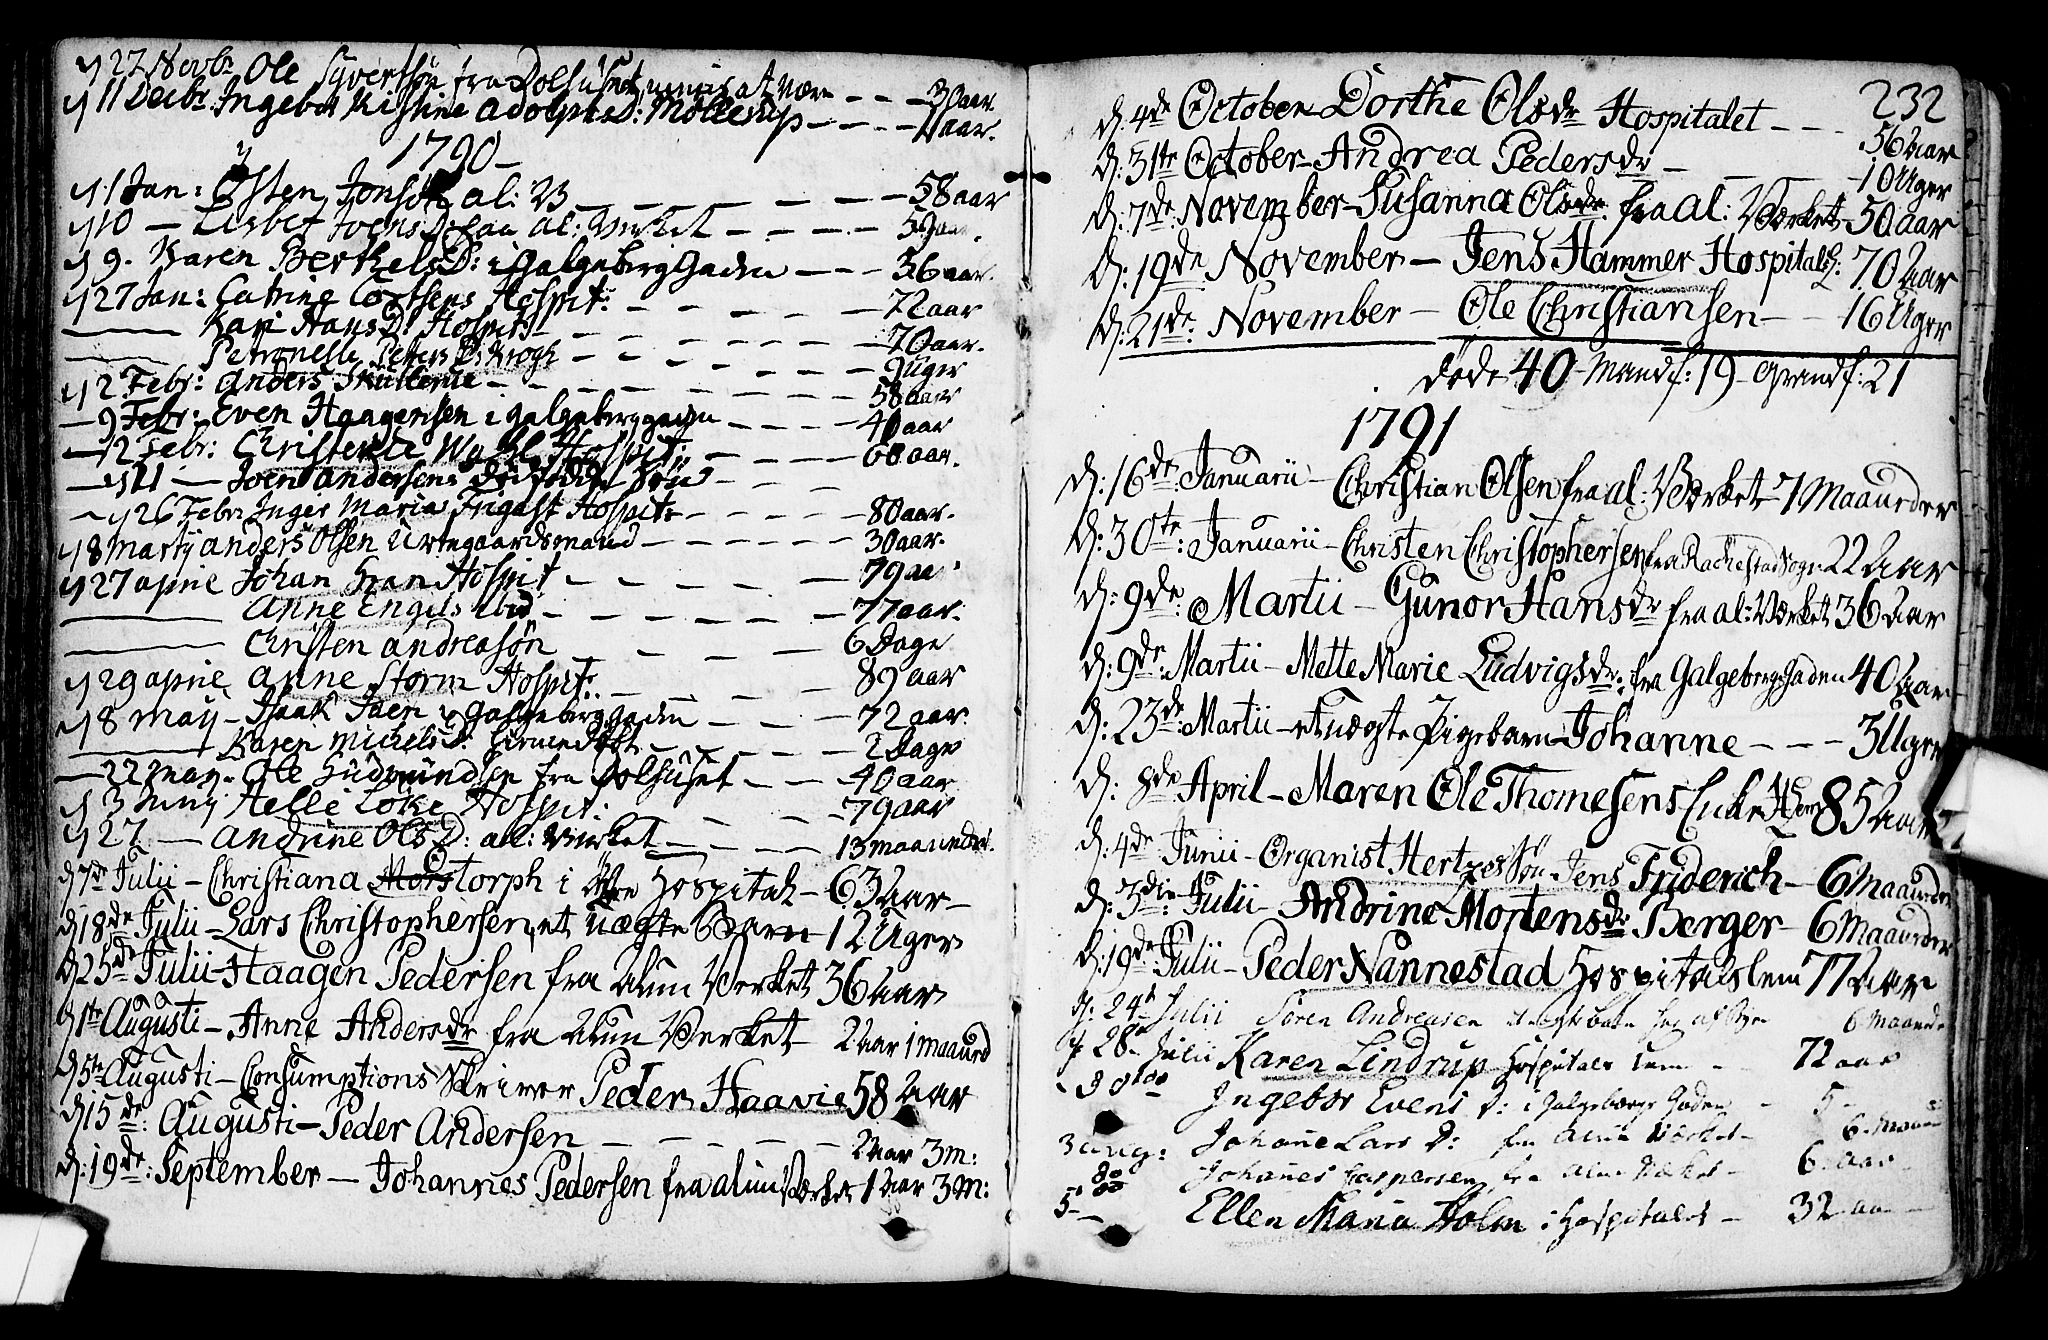 d 27 Novbr Ole Syversøn fra Dolhuset - - 30 aar
d 11 Decbr Ingebor Kistine Adolphs D: Møllerup - - - aar.
1790
d 1 Jan: Østen Jonsøn al: 23 - - - 58 aar
d 10 - Lisbet Joens D: fra al: Verket - - - 59 aar.
d 9. Karen Berthels D: i Galgeberg Gaden - - 36 aar.
d 27 Jan: Catrine Hospit: - - - 72 aar
Kari Hans D: Hospit: - - - 70 aar.
Petronelle Peters D: Krogh - - - 9 uger
d 2 Febr: Anders Skullerue - - - 58 aar
- 9 Febr: Even Haagensen i galgeberg gaden - - - 40 aar
- 12 Febr: Christense Wahl Hospit: - - - 60 aar.
- d 21 - Joen Andersens Søn - - -
- d 26 Febr: Inger Maria Hospit: - - - 80 aar.
d 8 Martij Anders Olsen Urtegaardsmand - - - 30 aar.
d 27 aprile Johan Hospit - - - 79 aar
Anne Engels ibid - - - 77 aar.
Christen Andreasøn - - - 6 Dage
d 29 aprile Anne Storm Hospit: - - - 89 aar
d 8 May - Isaak Jaen i Galgeberg gaden - - - 72 aar.
Karen Michels D: - - - 2 Dage
- 22 may - Ole Gudmundsen fra Dolhuset - - - 40 aar
d 3 Junij Helle Loke Hospit: - - - 79 aar
d 27 - Andrine Ols D: al: Verket - - - 13 maaneder.
d 7de Julii - Christiana Morstorph i Hospital - 63 Aar -
d 18de Julii - Lars Christophersen, et uægte Barn - 12 Uger
d 25de Julii - Haagen Pedersen fra Alun Verket 36 Aar
d 1te Augusti - Anne Andersdr fra Alun Verket - 2 aar 1 maaned
d 5te Augusti - Consumptions Skriver Peder Haavie 58 Aar
d 15de: Augusti - Peder Andersen - - - 2 Aar 3 m:
d: 19de: September - Johannes Pedersen fra alun Værket 1 Aar 3 m:
232
d. 4de October - Dorthe Olsdr Hospitalet - - - 56 Aar
d: 31te October - Andrea Pedersdr - - - 10 Uger
d. 7de November - Susanna Olsdr. fra al: Værket - 50 aar
d: 19de November - Jens Hammer Hospitals L: 70 Aar
d: 21de November - Ole Christiansen - - 16 Uger
Døde 40 - Mandf: 19 - Qvindf: 21
1791
d: 16de: Januarii - Christian Olsen fra al: Værket - 7 Maaneder
d: 30te: Januarii - Christen Christophersen fra Rachestad Sogn 22 Aar
d: 9de: Martii - Gunor Hansdr fra al: Værket 36 Aar
d: 9de Martii - Mette Marie Ludvigsdr: fra Galgeberg Gaden 40 Aar
d: 23de: Martii - et uægte Pigebarn - Johanne - - - 3 Uger
d: 8de April - Maren Ole Thomesens Encke 85 Aar
d: 4de Junii - Organist Hertzes Søn - Jens Friderich - 6 Maaneder
d: 3die: Julii - Andrine Mortensdr Berger - 6 Maaneder
d: 19de Julii - Peder Nannestad Hospitalslem 77 Aar
d. 24d Julii Søren Andreasen 6 Maaneder
d 28 - Julii Karen Lindrup Hospitals Lem - 72 aar
- 30 Ingebor Evens D: i Galgebergs Gaden - 5 -
3 aug: Johane Lars D: fra Alun Værket - 6 - Maaneder
8 Johanes Caspersen fra Alun Værket - 6 Aar
5 - Ellen Maria Holm i Hospitalet - 32 aar